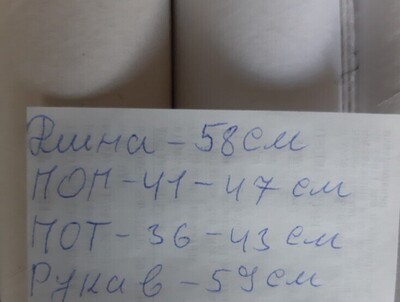 Длина - 58 см
ПОП - 41 - 47 см
ПОТ - 36 - 43 см
Рукав - 59 см